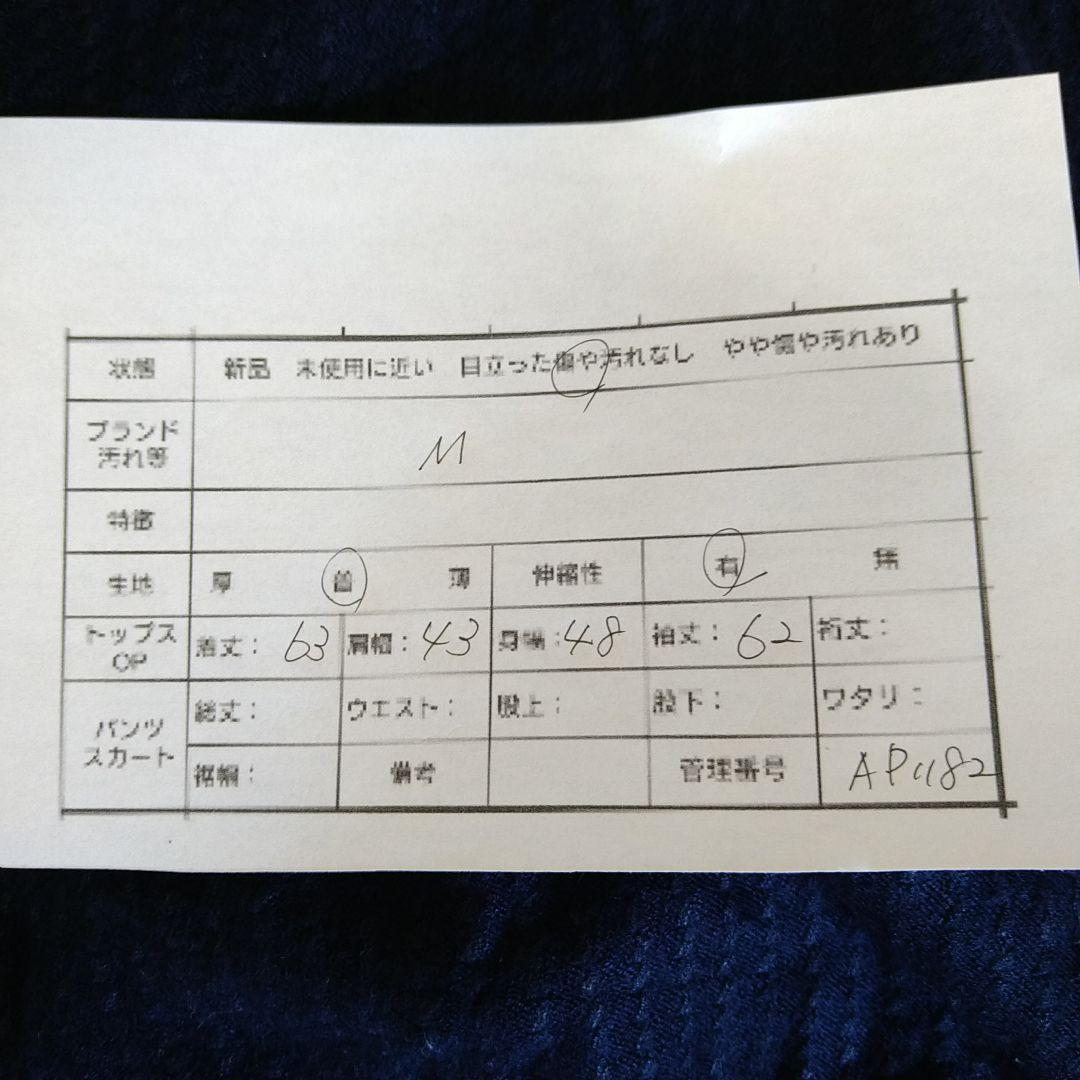 状態 新品 未使用に近い 目立った傷や汚れなし やや傷や汚れあり
ブランド
汚れ等 M
特徴
生地 厚 普 薄 伸縮性 有 無
トップス
OP 着丈： 63 肩幅： 43 身幅： 48 袖丈： 62 裄丈：
パンツ
スカート 総丈： ウエスト： 股上： 股下： ワタリ：
裾幅： 備考 管理番号 AP1182